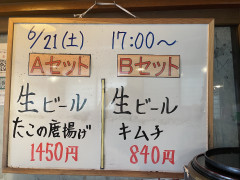 6/21(土) 17:00〜
Aセット
生ビール
たこの唐揚げ
1450円
Bセット
生ビール
キムチ
840円